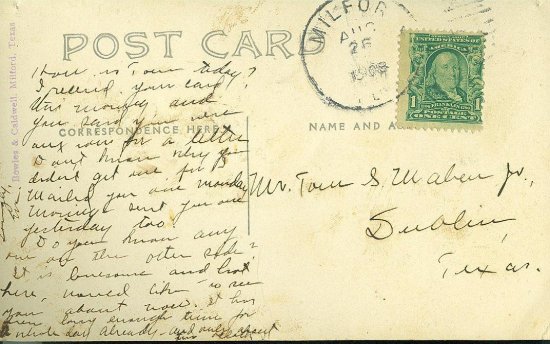 POST CARD
CORRESPONDENCE HERE
NAME AND
Bowles & Caldwell, Milford, Texas
MILFOR
AUG
26
1908
TEX
UNITED STATES OF
AMERICA
FRANKLIN
POSTAGE
1 1
ONE CENT
How is Tom today?
I received your card
this morning and
you said you were
for a letter
Don't know why you
didn't get one for I
mailed you one monday
morning sent you one
yesterday too.
Do you know any
one on the other side?
It is lonesome and hot
here, would like to see
you about now. It has
been long enough time for
a whole day already and only about
Mr. Tom S. Maben Jr.,
Dublin,
Texas.